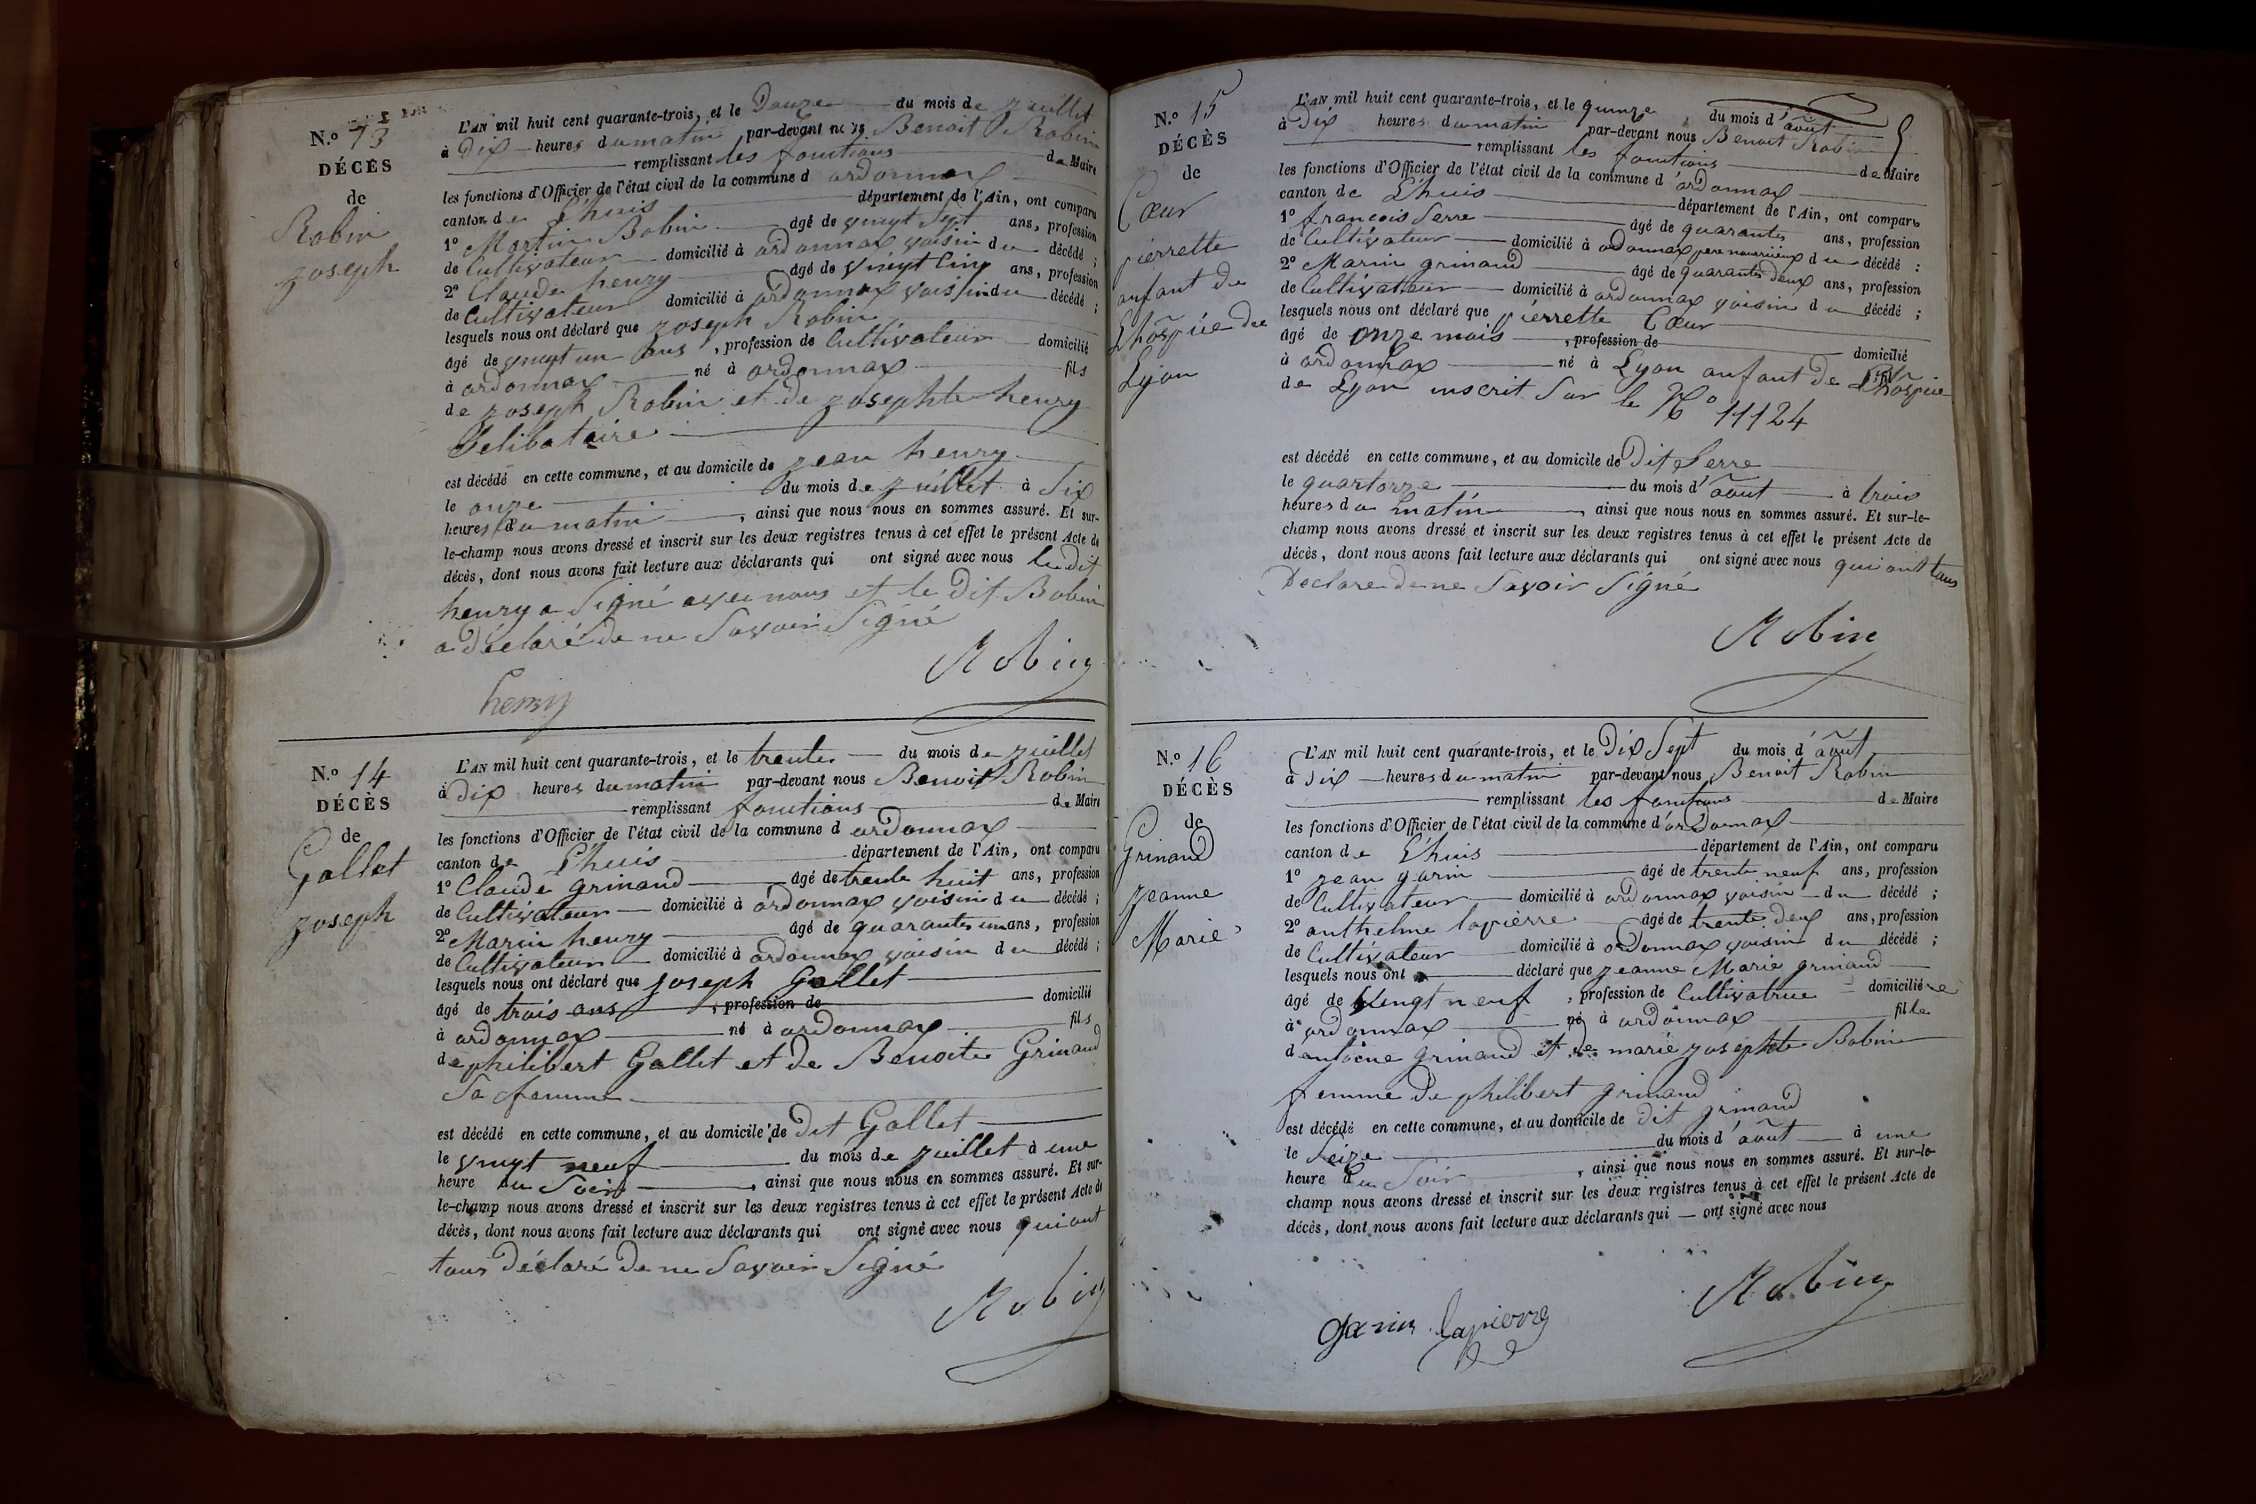 N.o 13
DÉCÈS
de
Robin
joseph
L'AN mil huit cent quarante-trois, et le Douze du mois de juillet
à Dix heures du matin par-devant nous Benoit Robin
remplissant les fonctions de Maire
les fonctions d'Officier de l'état civil de la commune d ordonnax
canton de L'huis département de l'Ain, ont comparu
1o Martin Bobin agé de vingt Sept ans, profession
de Cultivateur domicilié à ordonnax voisin du décédé ;
2o Claude henry agé de vingt Cinq ans, profession
de Cultivateur domicilié à ordonnax voisin du décédé ;
lesquels nous ont déclaré que joseph Robin
agé de vingt un ans , profession de Cultivateur domicilié
à ordonnax né à ordonnax fils
de joseph Robin et de josephte henry
Célibataire
est décédé en cette commune, et au domicile de jean henry
le onze du mois de juillet à Six
heures du matin , ainsi que nous nous en sommes assuré. Et sur-
le-champ nous avons dressé et inscrit sur les deux registres tenus à cet effet le présent Acte de
décès, dont nous avons fait lecture aux déclarants qui ont signé avec nous le dit
henry a Signé avec nous et le Dit Bobin
a déclaré de ne Savoir Signé
Robin
henry
N.o 14
DÉCÈS
de
Gallet
joseph
L'AN mil huit cent quarante-trois, et le trente du mois de juillet
à Dix heures du matin par-devant nous Benoit Robin
remplissant fonctions de Maire
les fonctions d'Officier de l'état civil de la commune d ordonnax
canton de L'huis département de l'Ain, ont comparu
1o Claude grinand agé de trente huit ans, profession
de Cultivateur domicilié à ordonnax voisin du décédé ;
2o Marin henry agé de quarante un ans, profession
de Cultivateur domicilié à ordonnax voisin du décédé ;
lesquels nous ont déclaré que joseph Gallet
agé de trois ans , profession de domicilié
à ordonnax né à ordonnax fils
de philibert Gallet et de Benoite Grinand
Sa femme
est décédé en cette commune, et au domicile de Dit Gallet
le vingt neuf du mois de juillet à une
heure du Soir , ainsi que nous nous en sommes assuré. Et sur-
le-champ nous avons dressé et inscrit sur les deux registres tenus à cet effet le présent Acte de
décès, dont nous avons fait lecture aux déclarants qui ont signé avec nous qui ont
tous Déclaré De ne Savoir Signé
Robin
N.o 15
DÉCÈS
de
Cœur
pierrette
anfant de
Lhospice de
Lyon
L'AN mil huit cent quarante-trois, et le quinze du mois d'août
à Dix heures du matin par-devant nous Benoit Robin
remplissant les fonctions de Maire
les fonctions d'Officier de l'état civil de la commune d'ordonnax
canton de L'huis département de l'Ain, ont comparu
1o françois Serre agé de quarante ans, profession
de Cultivateur domicilié à ordonnax pere nourricieux du décédé ;
2o Marin grinand agé de quarante deux ans, profession
de Cultivateur domicilié à ordonnax voisin du décédé ;
lesquels nous ont déclaré que pierrette Cœur
agé de onze mois , profession de domicilié
à ordonnax né à Lyon anfant de Lhospice
de Lyon inscrit Sur le No 11124
est décédé en cette commune, et au domicile de Dit Serre
le quartorze du mois d'août à trois
heures du matin , ainsi que nous nous en sommes assuré. Et sur-le-
champ nous avons dressé et inscrit sur les deux registres tenus à cet effet le présent Acte de
décès, dont nous avons fait lecture aux déclarants qui ont signé avec nous qui ont tous
Déclare de ne Savoir Signé
Robin
N.o 16
DÉCÈS
de
Grinand
jeanne
Marie
L'AN mil huit cent quarante-trois, et le Dix Sept du mois d'août
à Dix heures du matin par-devant nous Benoit Robin
remplissant les fonctions de Maire
les fonctions d'Officier de l'état civil de la commune d'ordonnax
canton de L'huis département de l'Ain, ont comparu
1o jean garin agé de trente neuf ans, profession
de Cultivateur domicilié à ordonnax voisin du décédé ;
2o anthelme lapierre agé de trente deux ans, profession
de Cultivateur domicilié à ordonnax voisin du décédé ;
lesquels nous ont déclaré que jeanne Marie grinand
agé de Vingt neuf , profession de Cultivatrice domiciliée
à ordonnax né à ordonnax fille
d'antoine grinand et de marie josephte Bobin
femme De philibert grinand
est décédé en cette commune, et au domicile de dit grinand
le Seize du mois d'août à une
heure du Soir , ainsi que nous nous en sommes assuré. Et sur-le-
champ nous avons dressé et inscrit sur les deux registres tenus à cet effet le présent Acte de
décès, dont nous avons fait lecture aux déclarants qui ont signé avec nous
Robin
Garin lapierre